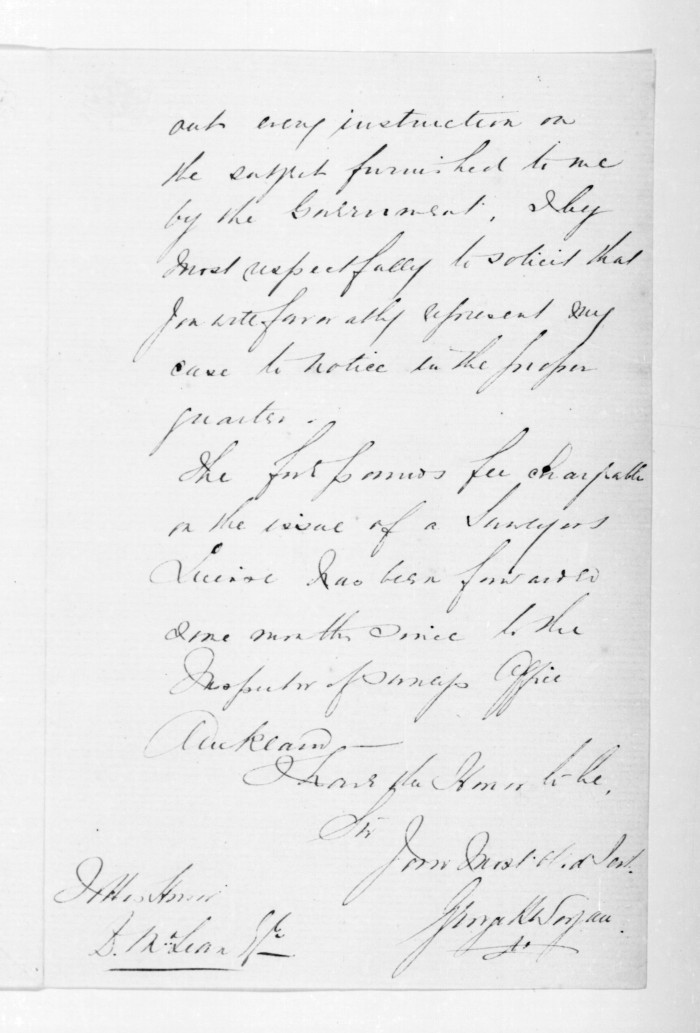 out every instruction on
the subject furnished to me
by the Government, I beg
most respectfully to solicit that
you will favorably represent my
case to notice in the proper
quarter.
The five pounds fee chargeable
on the issue of a Surveyors
License has been forwarded
some months since to the
Inspector of Surveys Office
Auckland —
I have the Honor to be,
Sir
Your Most Obd Sert.
George
To His Honor
D. McLean Esqre